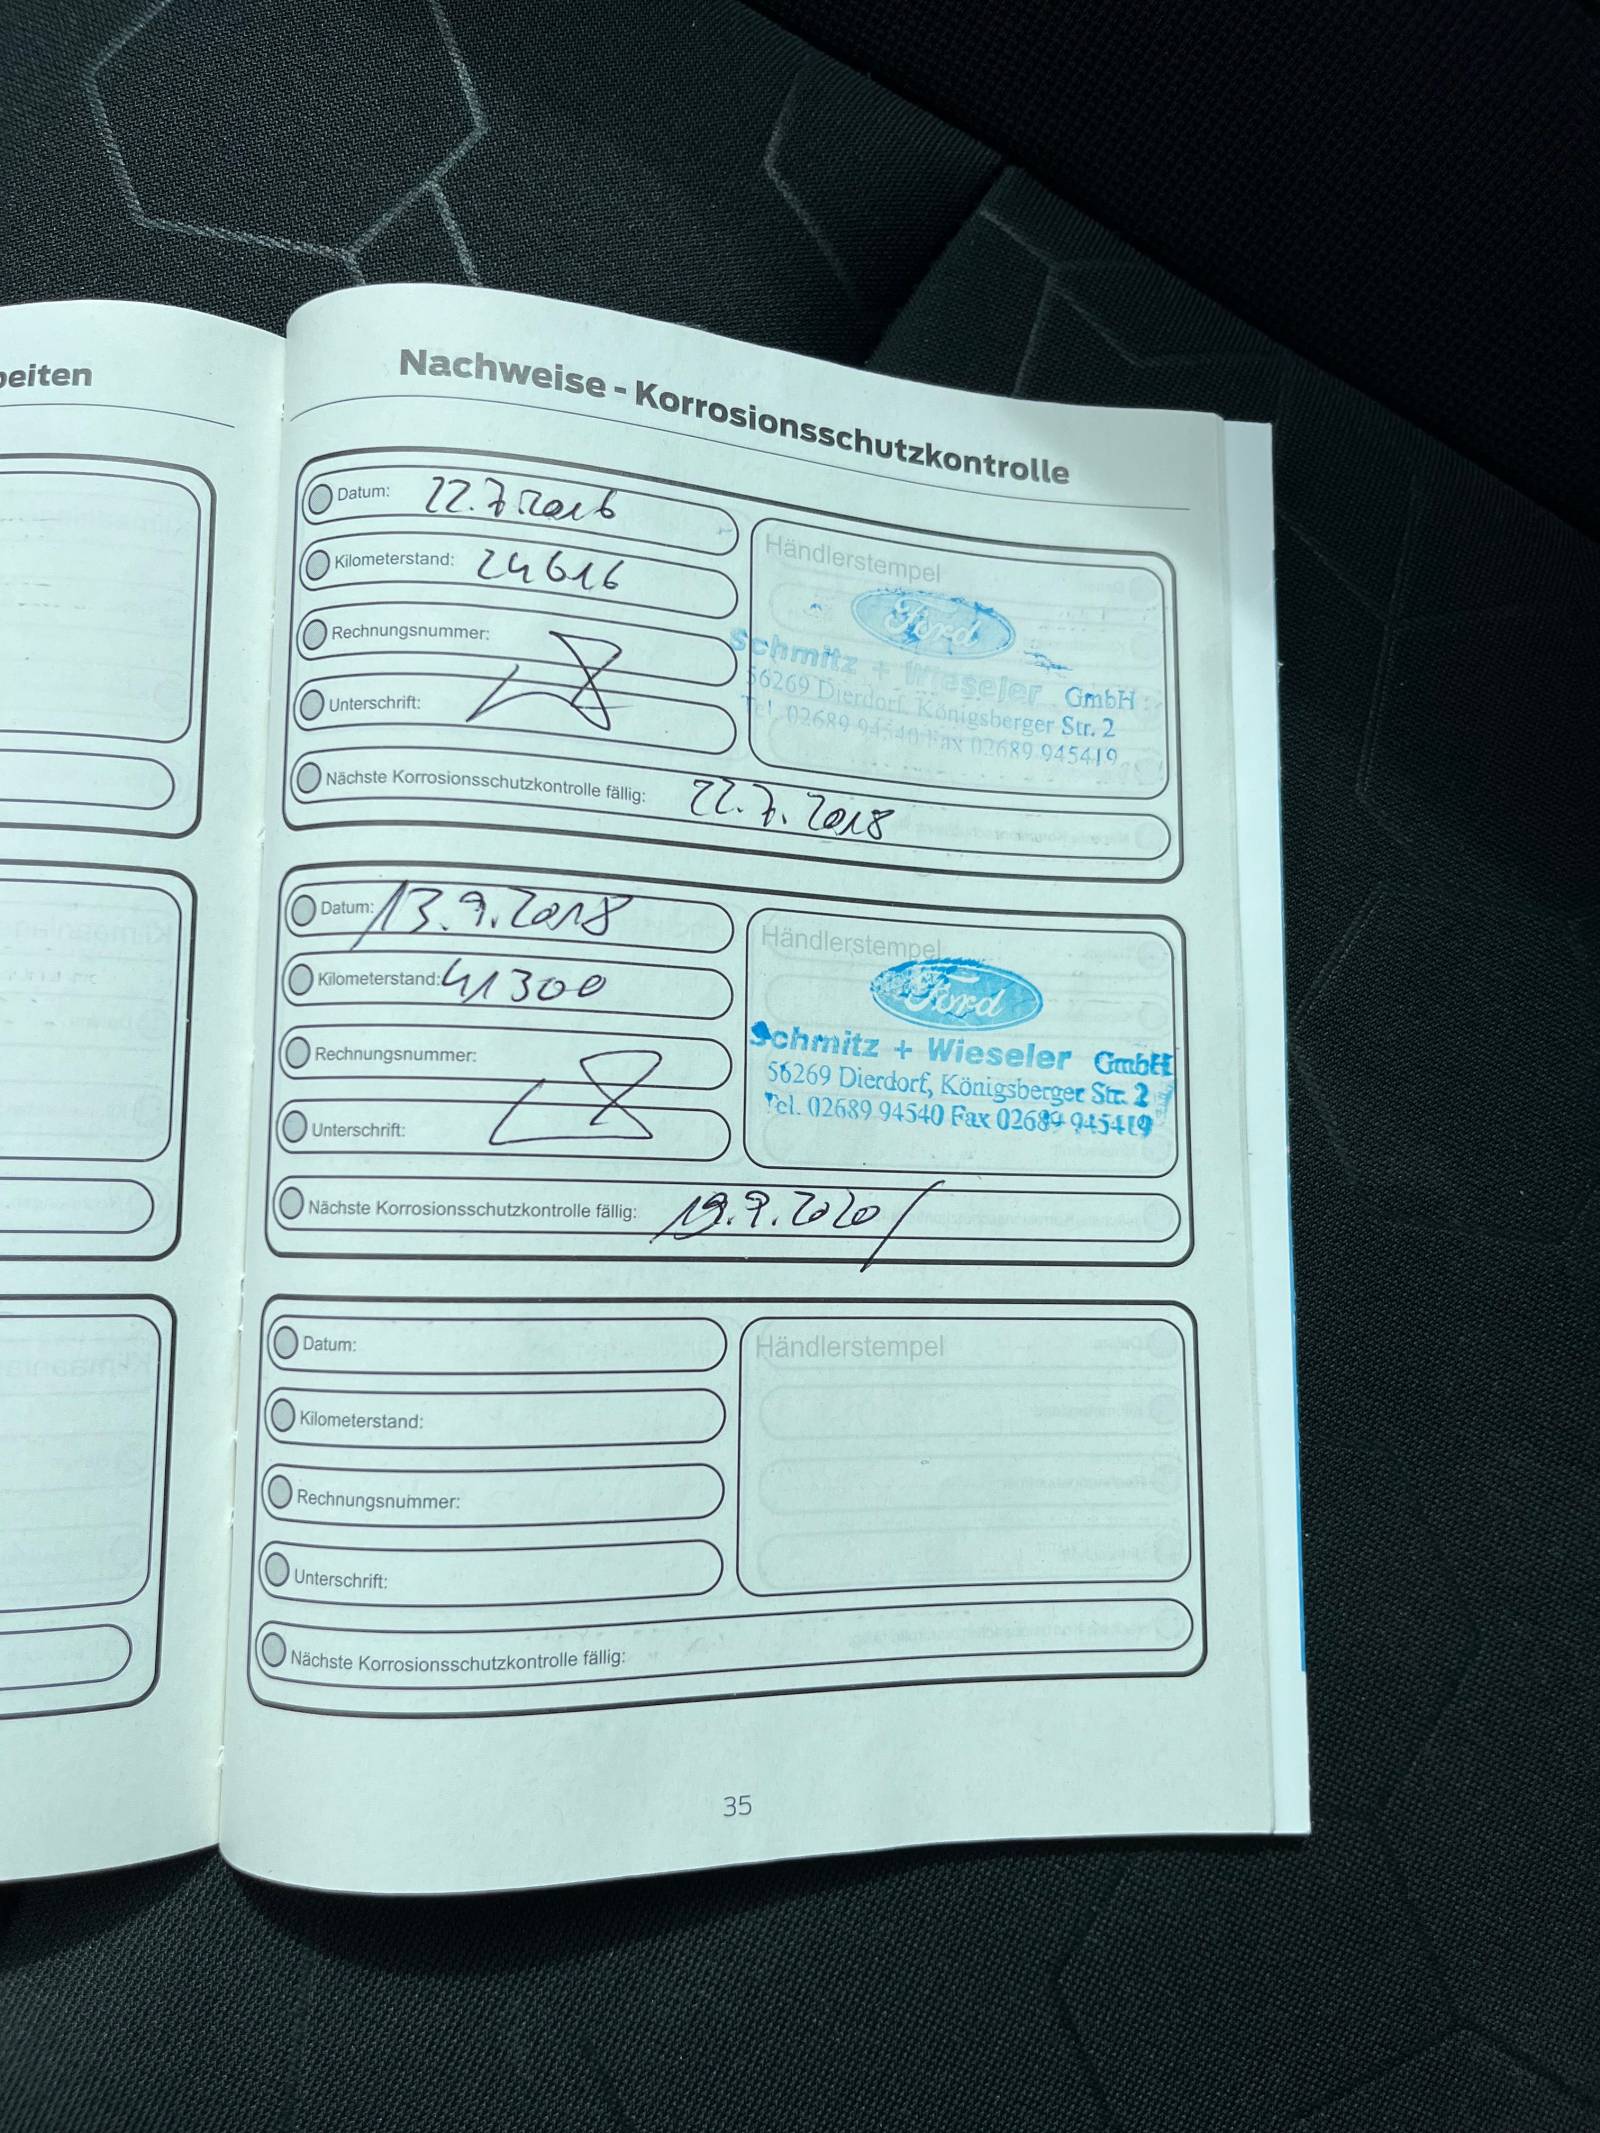 beiten
Nachweise - Korrosionsschutzkontrolle
Datum: 22.7.2016
Kilometerstand: 24616
Rechnungsnummer:
Unterschrift:
Händlerstempel
Ford
Schmitz + Wieseler GmbH
56269 Dierdorf, Königsberger Str. 2
Tel. 02689 94540 Fax 02689 945419
Nächste Korrosionsschutzkontrolle fällig: 22.7.2018
Datum: 13.9.2018
Kilometerstand: 41300
Rechnungsnummer:
Unterschrift:
Händlerstempel
Ford
Schmitz + Wieseler GmbH
56269 Dierdorf, Königsberger Str. 2
Tel. 02689 94540 Fax 02689 945419
Nächste Korrosionsschutzkontrolle fällig: 19.9.2020
Datum:
Kilometerstand:
Rechnungsnummer:
Unterschrift:
Händlerstempel
Nächste Korrosionsschutzkontrolle fällig:
35